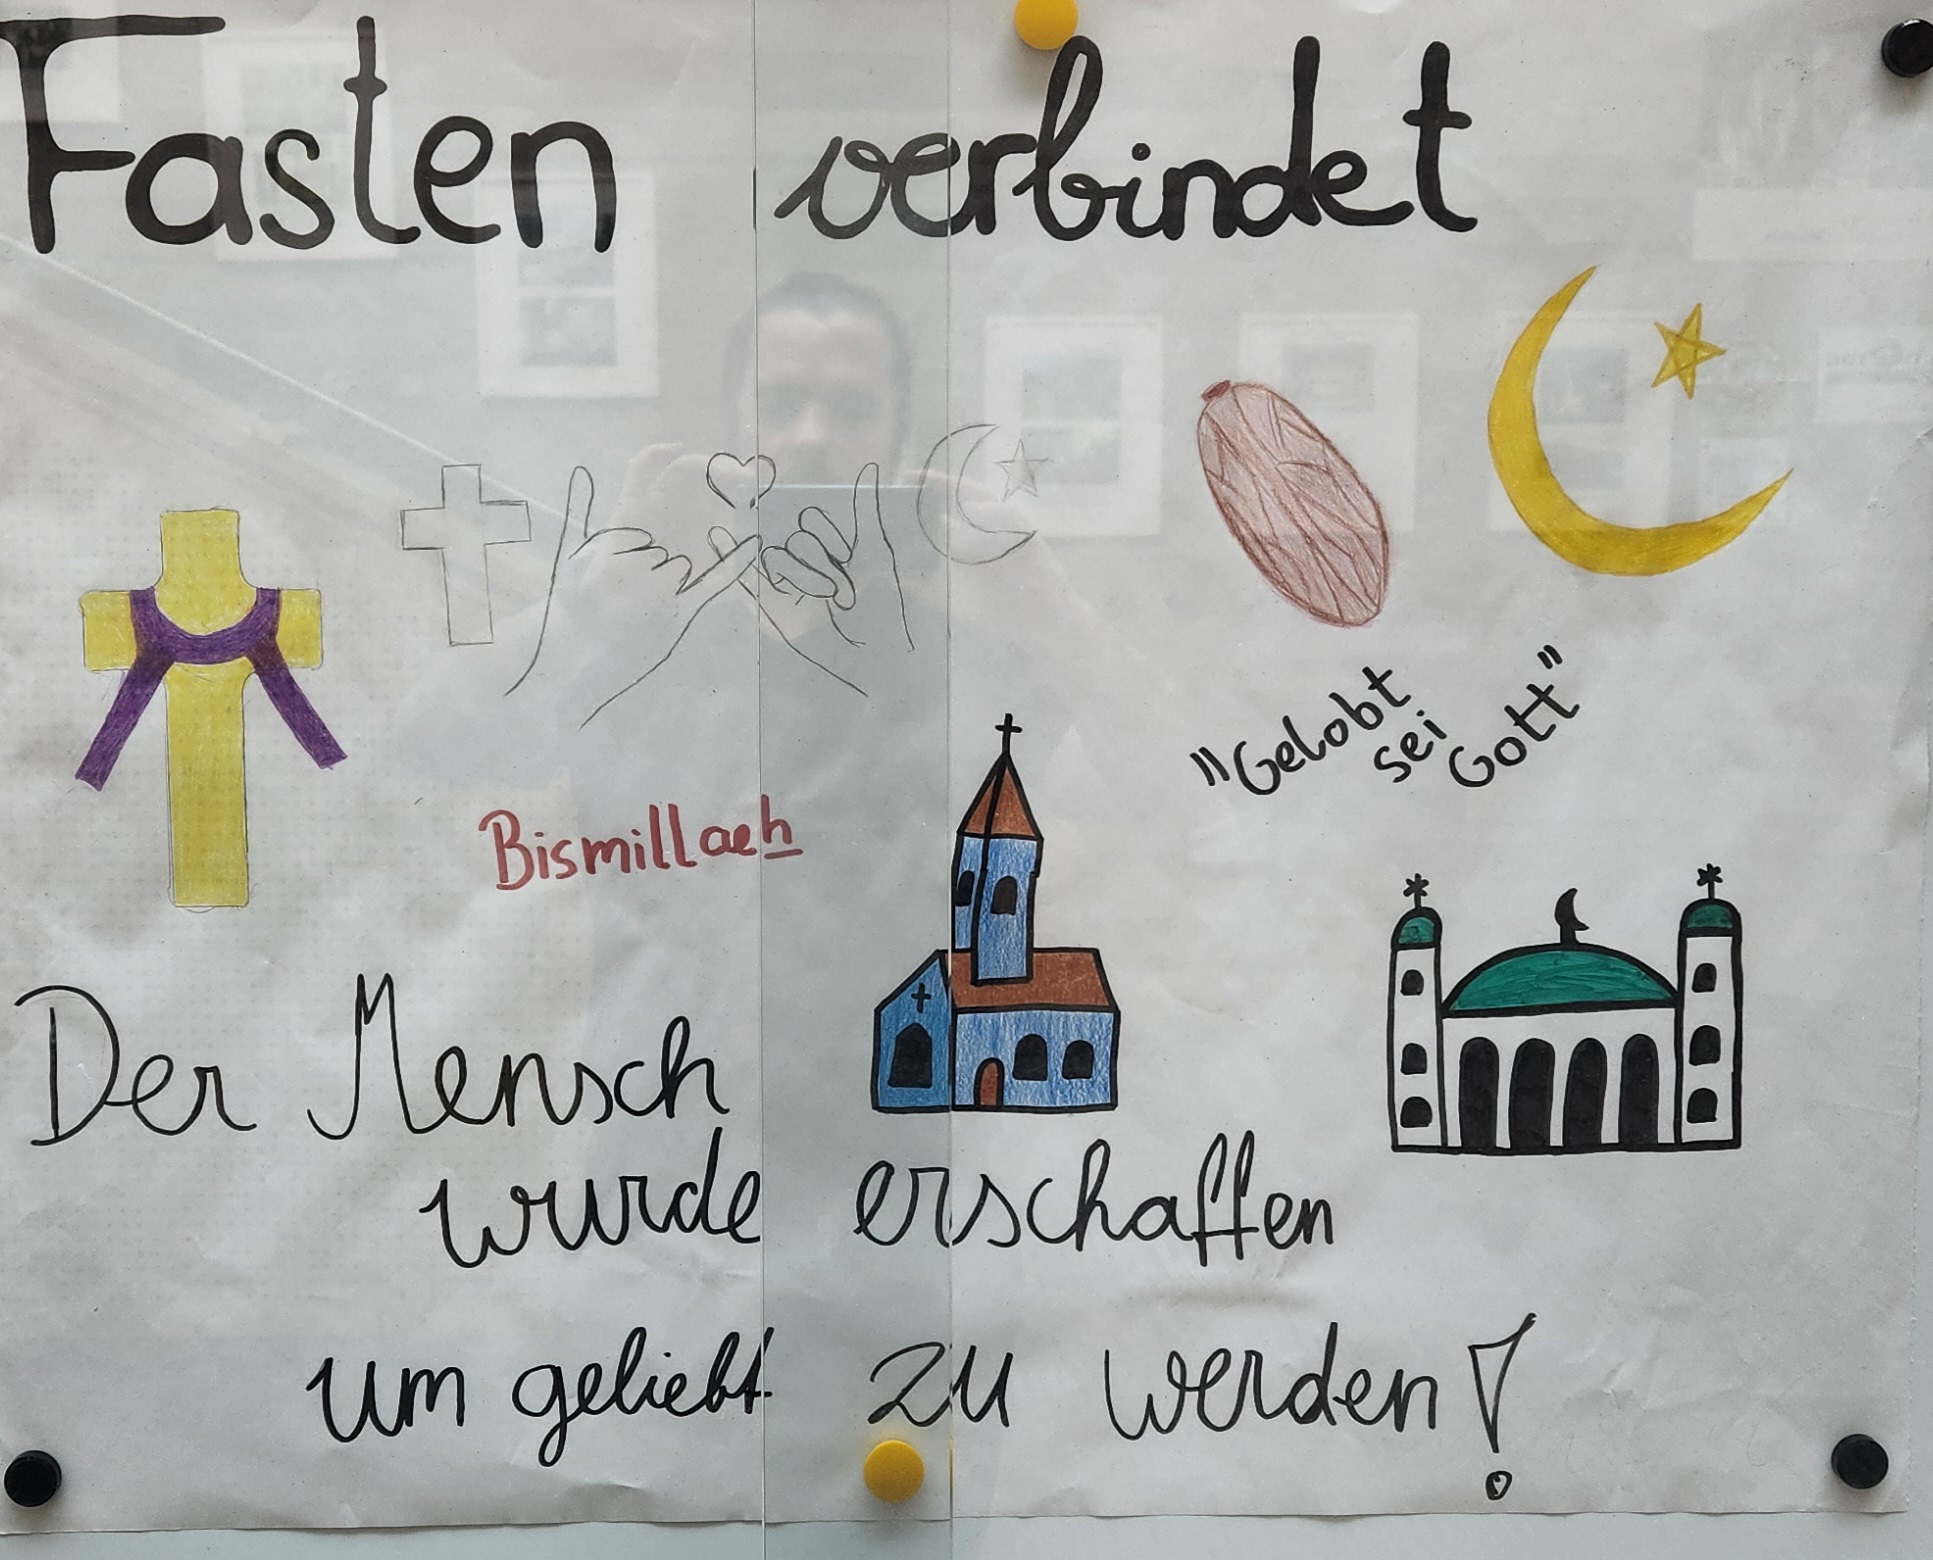 Fasten verbindet
"Gelobt
sei
Gott"
Bismillaeh
Der Mensch
wurde erschaffen
um geliebt zu werden!